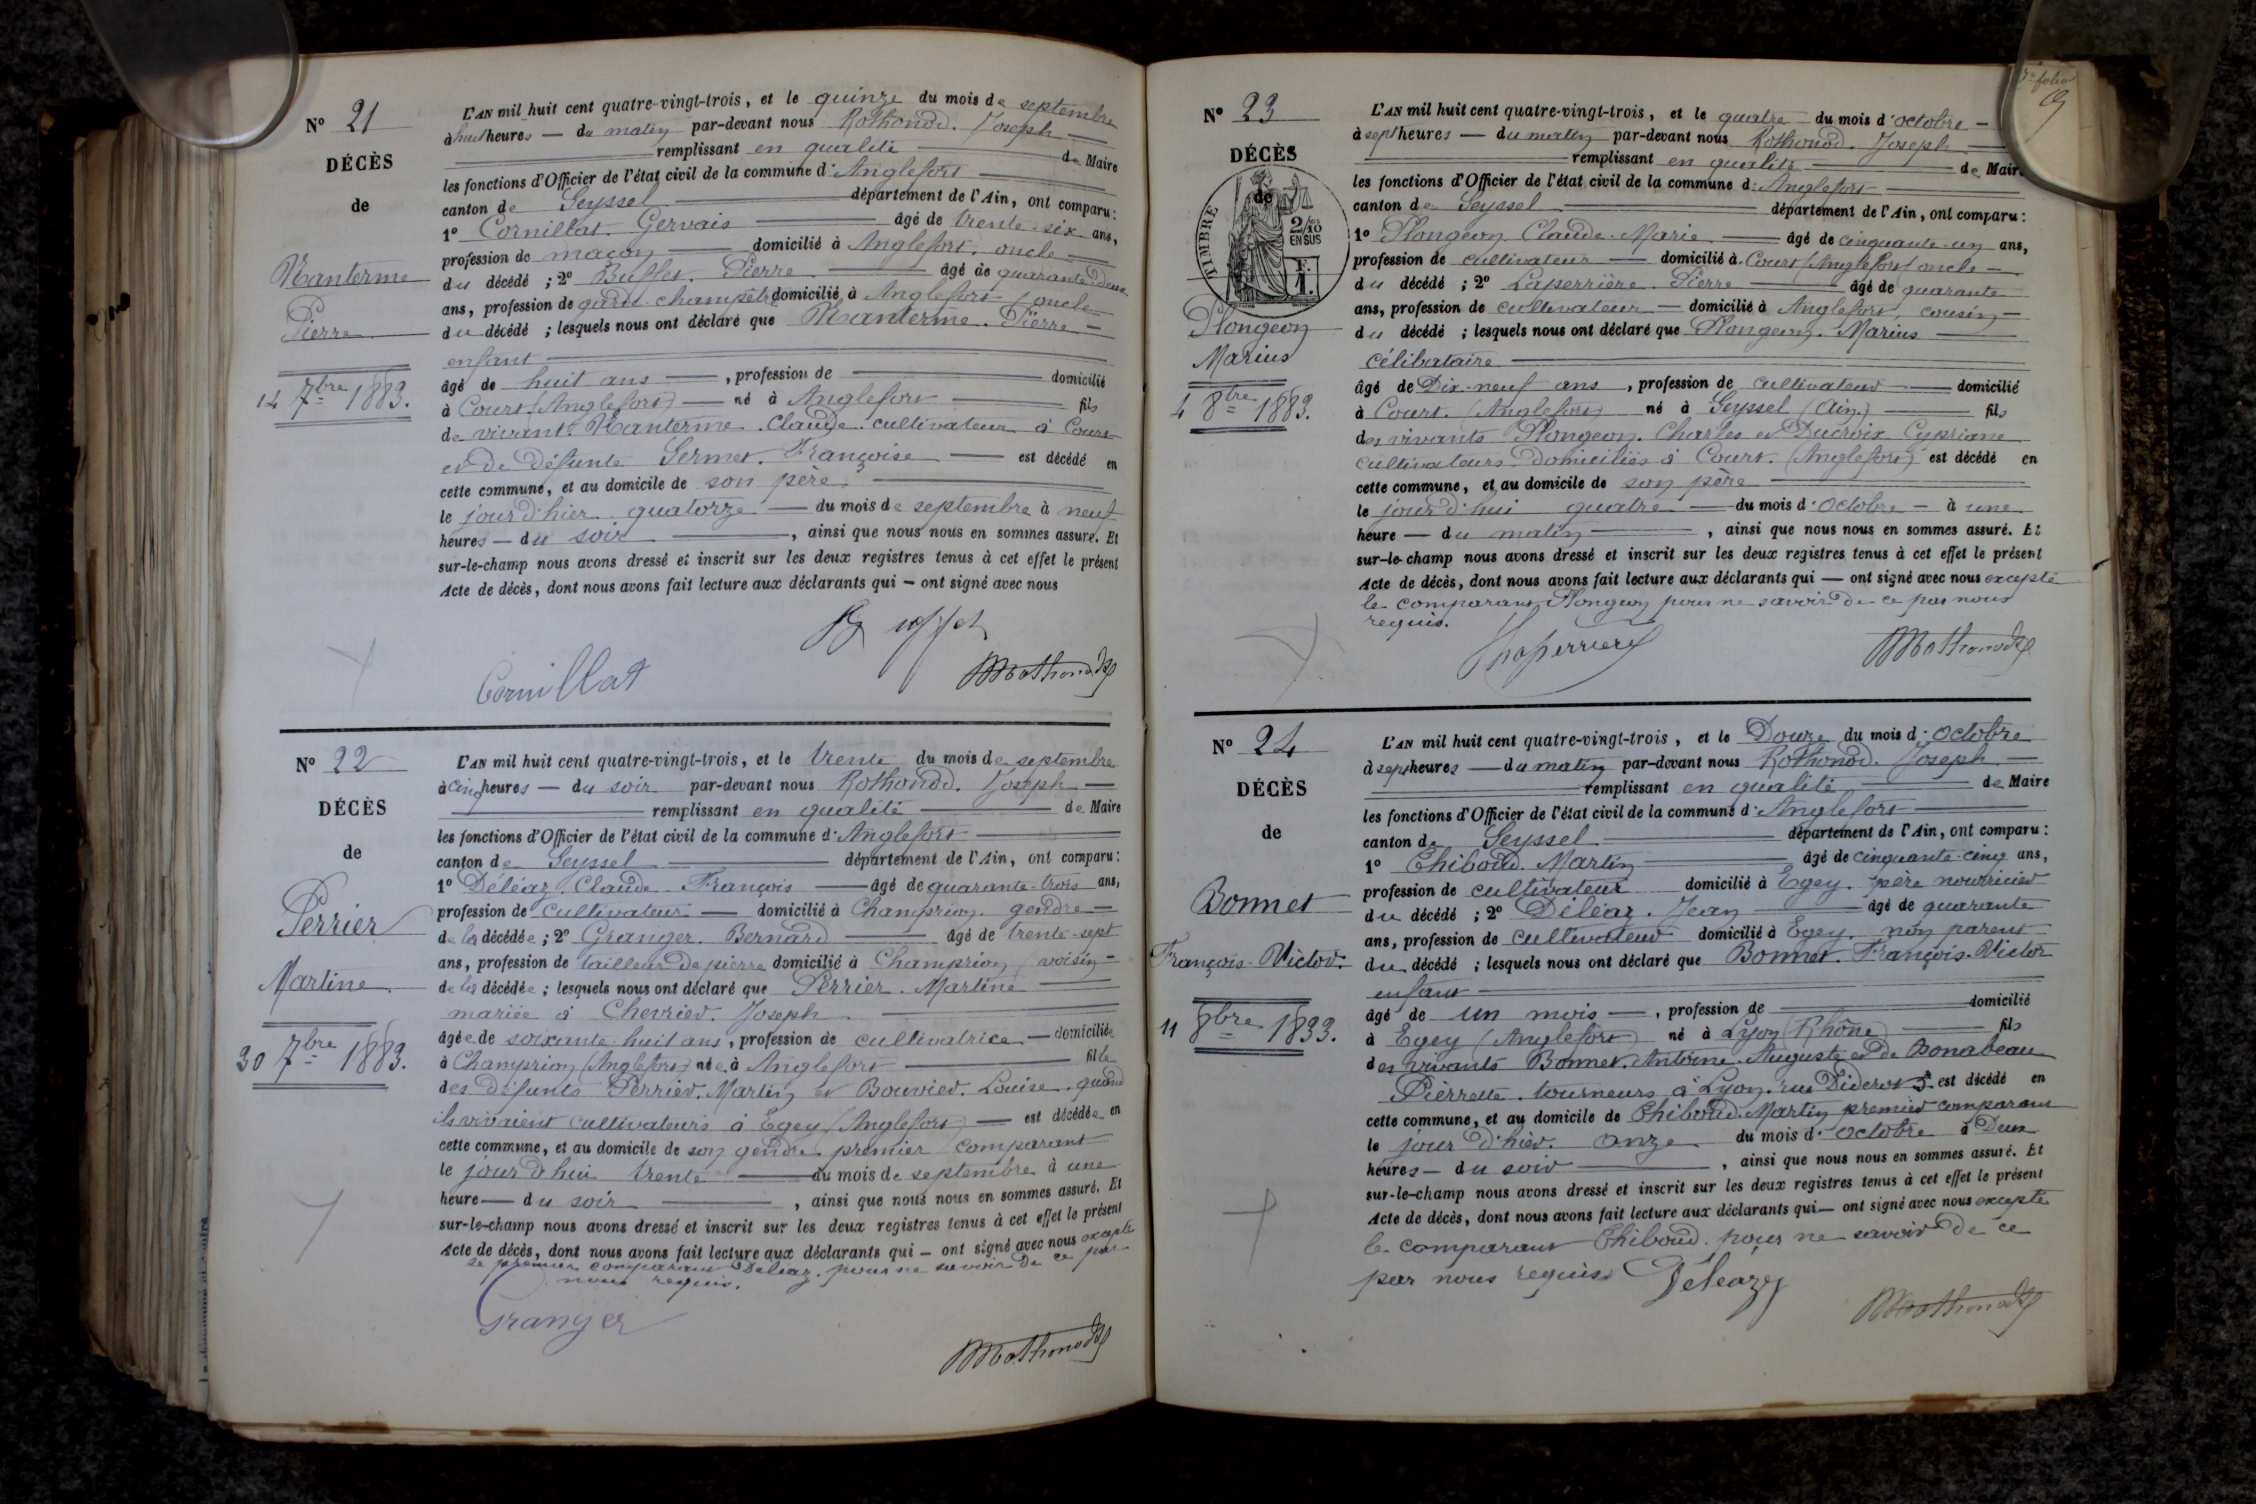 N° 21
DÉCÈS
de
Nanterme
Pierre
14 7bre 1883.
L'AN mil huit cent quatre-vingt-trois, et le quinze du mois de septembre
à huit heures — du matin par-devant nous Rothonod. Joseph
remplissant en qualité de Maire
les fonctions d'Officier de l'état civil de la commune d'Anglefort
canton de Seyssel département de l'Ain, ont comparu :
1° Cornillat. Gervais âgé de trente-six ans,
profession de maçon domicilié à Anglefort, oncle
du décédé ; 2° Buffet. Pierre âgé de quarante-deux
ans, profession de garde-champêtre domicilié à Anglefort, oncle
du décédé ; lesquels nous ont déclaré que Nanterme. Pierre
enfant
âgé de huit ans, profession de domicilié
à Court (Anglefort) né à Anglefort fils
de vivant Nanterme. Claude cultivateur à Court
et de défunte Sermet. Françoise est décédé en
cette commune, et au domicile de son père
le jour d'hier quatorze du mois de septembre à neuf
heures — du soir, ainsi que nous nous en sommes assuré. Et
sur-le-champ nous avons dressé et inscrit sur les deux registres tenus à cet effet le présent
Acte de décès, dont nous avons fait lecture aux déclarants qui — ont signé avec nous
Buffet
Cornillat
Rothonod
N° 22
DÉCÈS
de
Perrier
Martine.
30 7bre 1883.
L'AN mil huit cent quatre-vingt-trois, et le trente du mois de septembre
à cinq heures — du soir par-devant nous Rothonod. Joseph —
remplissant en qualité de Maire
les fonctions d'Officier de l'état civil de la commune d'Anglefort
canton de Seyssel département de l'Ain, ont comparu :
1° Déléaz. Claude François âgé de quarante-trois ans,
profession de cultivateur — domicilié à Champrion, gendre —
de la décédée ; 2° Granger. Bernard âgé de trente-sept
ans, profession de tailleur de pierre domicilié à Champrion, voisin —
de la décédée ; lesquels nous ont déclaré que Perrier. Martine
mariée à Chevrier. Joseph
âgée de soixante-huit ans, profession de cultivatrice — domiciliée
à Champrion (Anglefort) née à Anglefort fille
des défunts Perrier. Martin et Bouvier. Louise. quand
ils vivaient cultivateurs à Egey (Anglefort) — est décédée en
cette commune, et au domicile de son gendre premier comparant
le jour d'hui trente du mois de septembre à une
heure — du soir, ainsi que nous nous en sommes assuré. Et
sur-le-champ nous avons dressé et inscrit sur les deux registres tenus à cet effet le présent
Acte de décès, dont nous avons fait lecture aux déclarants qui — ont signé avec nous excepté
le premier comparant Déléaz. pour ne savoir de ce par
nous requis.
Granger
Rothonod
folio
N° 23
DÉCÈS
de
TIMBRE
2/10 EN SUS
F. 1.
Plongeon
Marius
4 8bre 1883.
L'AN mil huit cent quatre-vingt-trois, et le quatre du mois d'octobre —
à sept heures — du matin par-devant nous Rothonod. Joseph
remplissant en qualité de Maire
les fonctions d'Officier de l'état civil de la commune d'Anglefort
canton de Seyssel département de l'Ain, ont comparu :
1° Plongeon Claude-Marie âgé de cinquante-un ans,
profession de cultivateur — domicilié à Court (Anglefort) oncle —
du décédé ; 2° Laperrière. Pierre âgé de quarante
ans, profession de cultivateur — domicilié à Anglefort, cousin —
du décédé ; lesquels nous ont déclaré que Plongeon. Marius
célibataire
âgé de Dix-neuf ans, profession de cultivateur domicilié
à Court. (Anglefort) né à Seyssel (Ain.) fils
des vivants Plongeon. Charles et Ducroix Cypriane
cultivateurs domiciliés à Court. (Anglefort) est décédé en
cette commune, et au domicile de son père
le jour d'hui quatre du mois d'octobre — à une
heure — du matin, ainsi que nous nous en sommes assuré. Et
sur-le-champ nous avons dressé et inscrit sur les deux registres tenus à cet effet le présent
Acte de décès, dont nous avons fait lecture aux déclarants qui — ont signé avec nous excepté
le comparant Plongeon pour ne savoir de ce par nous
requis.
Laperriere
Rothonod
N° 24
DÉCÈS
de
Bonnet
François-Victor.
11 8bre 1883.
L'AN mil huit cent quatre-vingt-trois, et le Douze du mois d'octobre
à sept heures — du matin par-devant nous Rothonod. Joseph —
remplissant en qualité de Maire
les fonctions d'Officier de l'état civil de la commune d'Anglefort
canton de Seyssel département de l'Ain, ont comparu :
1° Thiboud. Martin âgé de cinquante-cinq ans,
profession de cultivateur domicilié à Egey. père nourricier
du décédé ; 2° Déléaz. Jean âgé de quarante
ans, profession de cultivateur domicilié à Egey, non parent
du décédé ; lesquels nous ont déclaré que Bonnet. François-Victor
enfant
âgé de un mois —, profession de domicilié
à Egey (Anglefort) né à Lyon (Rhône) fils
des vivants Bonnet. Antoine-Auguste et de Bonabeau
Pierrette. tourneurs à Lyon. rue Diderot 5. est décédé en
cette commune, et au domicile de Thiboud. Martin premier comparant
le jour d'hier. onze du mois d'octobre à Deux
heures — du soir, ainsi que nous nous en sommes assuré. Et
sur-le-champ nous avons dressé et inscrit sur les deux registres tenus à cet effet le présent
Acte de décès, dont nous avons fait lecture aux déclarants qui — ont signé avec nous excepté
le comparant Thiboud. pour ne savoir de ce
par nous requis
Déléaz
Rothonod